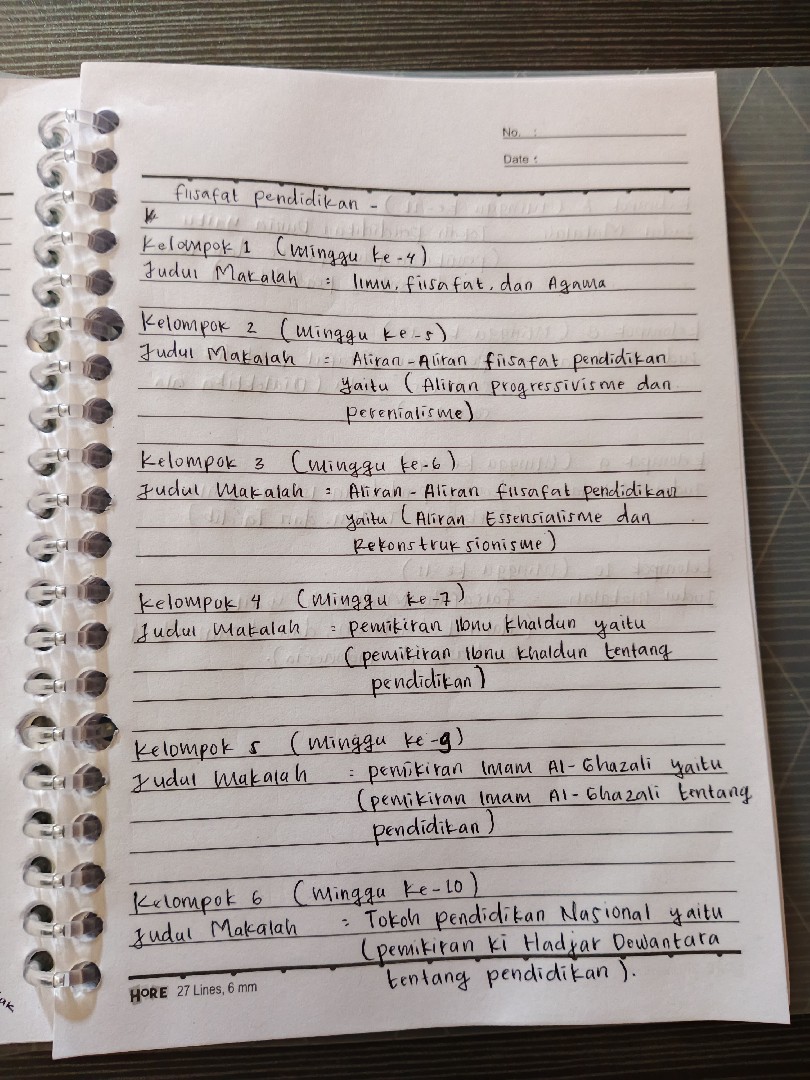 No. :
Date :
filsafat pendidikan -
Kelompok 1 (Minggu ke-4)
Judul Makalah : Ilmu, filsafat, dan Agama
Kelompok 2 (Minggu ke-5)
Judul Makalah : Aliran-Aliran filsafat pendidikan
yaitu (Aliran progressivisme dan
perenialisme)
Kelompok 3 (Minggu ke-6)
Judul Makalah : Aliran-Aliran filsafat pendidikan
yaitu (Aliran Essensialisme dan
Rekonstruksionisme)
Kelompok 4 (Minggu ke-7)
Judul Makalah : pemikiran Ibnu khaldun yaitu
(pemikiran Ibnu khaldun tentang
pendidikan)
Kelompok 5 (Minggu ke-9)
Judul Makalah : pemikiran Imam Al-Ghazali yaitu
(pemikiran Imam Al-Ghazali tentang
pendidikan)
Kelompok 6 (Minggu ke-10)
Judul Makalah : Tokoh pendidikan Nasional yaitu
(pemikiran ki Hadjar Dewantara
tentang pendidikan).
HORE 27 Lines, 6 mm